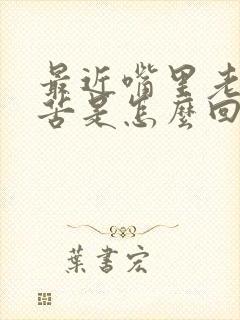 最近嘴里老
苦是怎麼回
葉書宏